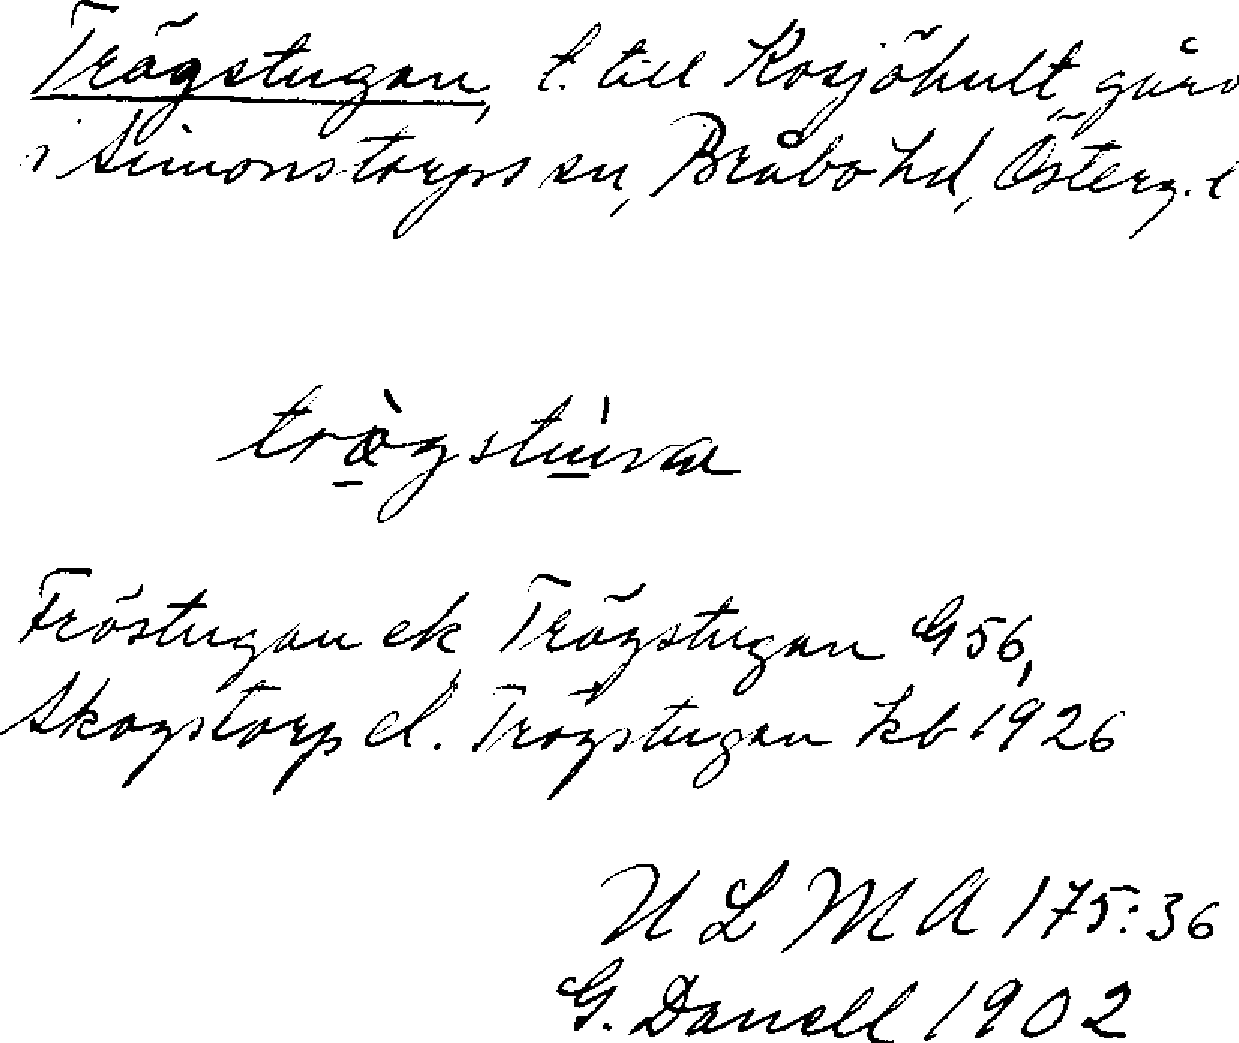 Trögstugan, t. till Rosjöhult, gård
i Simonstorps sn, Bråbo hd, Österg. l
Fröstugan ek Trögstugan G 56,
Skogstorp el. Trögstugan kb 1926
U L M A 175:36
G. Danell 1902